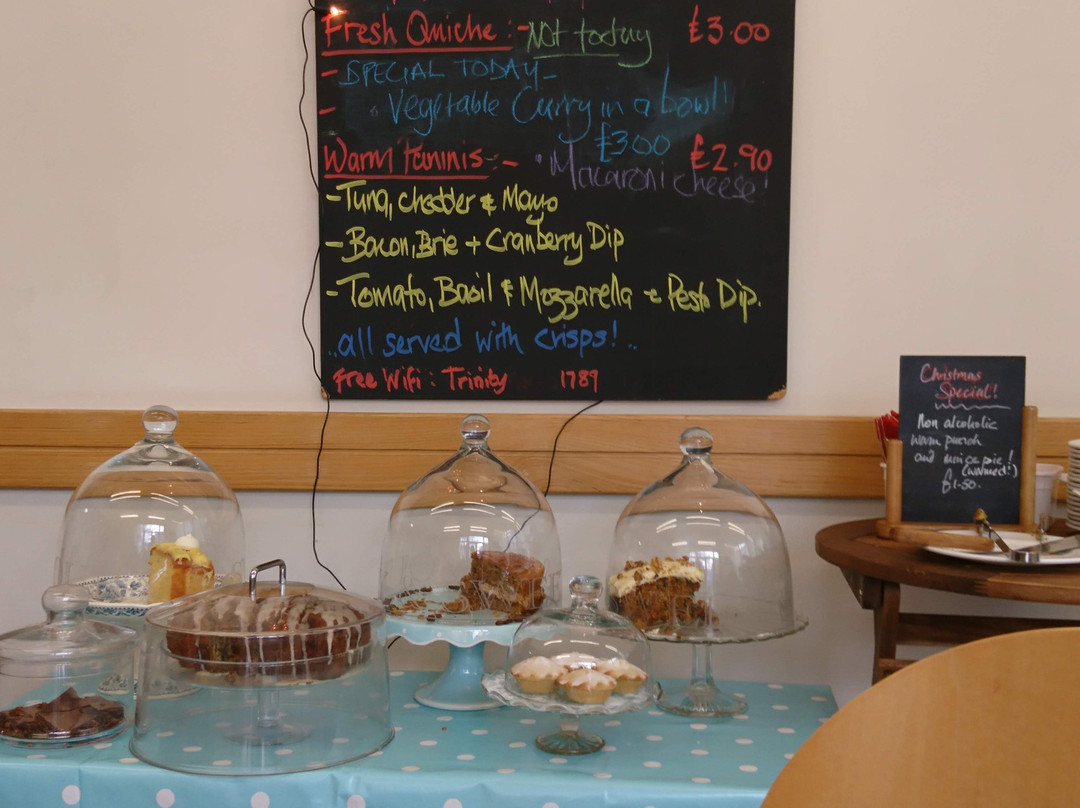 Fresh Quiche :- Not today £3.00
- SPECIAL TODAY -
- Vegetable Curry in a bowl!
£3.00
Warm Paninis :- £2.90
• Macaroni cheese!
- Tuna, cheddar & Mayo
- Bacon, Brie + Cranberry Dip
- Tomato, Basil & Mozzarella + Pesto Dip.
..all served with crisps!..
Free Wifi : Trinity 1789
Christmas
Special!
Non alcoholic
warm punch
and mince pie!
(warmed!)
£1.50.